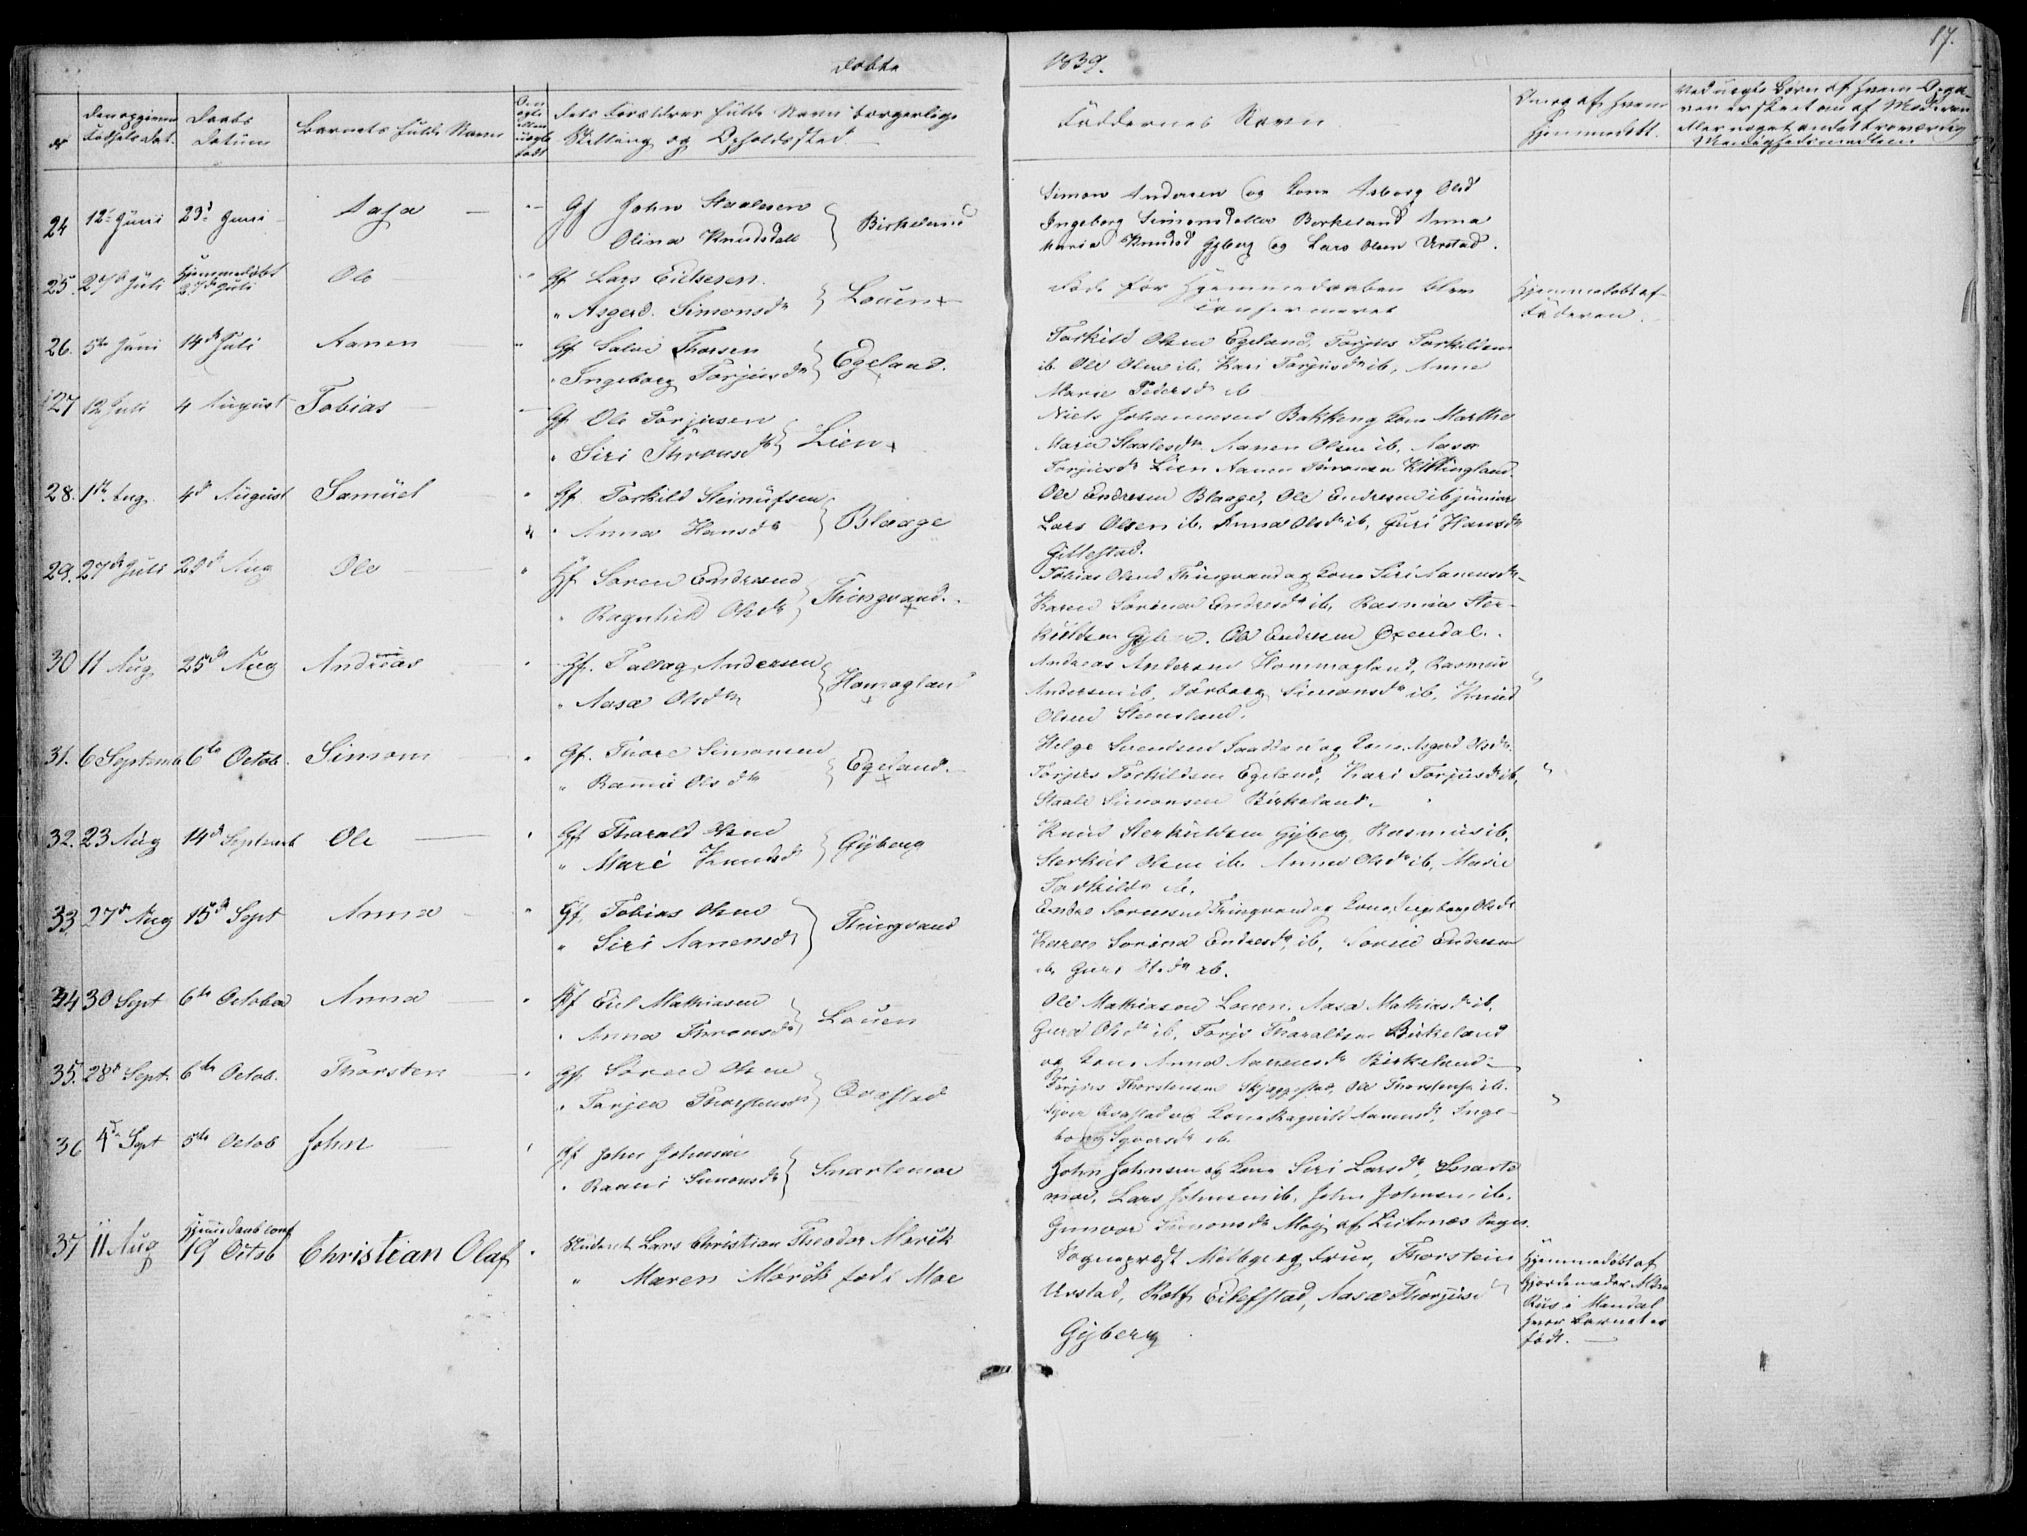 Døbte 1839. 17.
No
Den opgivne Fødselsdat.
Daabs Datum
Barnets fulde Navn
Om ægte eller uægte født
Dets Forældres fulde Navn borgerlige Stilling og Opholdssted
Faddernes Navn
Naar af hvem Hjemmedøbt.
24 12te Juni 23d Juni Aasa Gf John Staalesen
Olina Knudsdatt } Birkeland
Simon Andersen og Kone Asborg Olsd
Ingeborg Simonsdatter Birkeland Anna
Maria Knudsd Gyberg og Lars Olsen Urstad.
25. 27de Juli Hjemmedøbt 27de Juli Ole Gf Lars Eilertsen
" Asgerd Simonsdr } Louen
Døde før Hjemmedaaben blev
Confirmeret
Hjemmedøbt af
Faderen.
26. 5te Juni 14d Juli Aanen Gf Salve Thorsen
" Ingeborg Torjusdr } Egeland.
Torkild Olsen Egeland, Torjus Torkildsen
ib. Ole Olsen ib, Kari Torjusdr ib, Anne
Marie Pedersdr ib
27 12 Juli 4 August Tobias Gf Ole Torjusen
" Siri Thronsdr } Lien
Niels Johannesen Bakken og Kone Marthe
Maria Staalesdr Aanen Olsen ib. Aasa
Torjusdr Lien Aanen Tronsen Killingland.
28. 1te Aug. 4d August Samuel Gf Torkild Steinulfsen
" Anna Hansdr } Blaage
Ole Endresen Blaage, Ole Endresen ib junior
Lars Olsen ib. Anna Olsdr ib, Guri Hansdr
Gillestad.
29. 27de Juli 25d Aug Ole Gf Søren Endresen
" Ragnhild Olsdr } Thingvand.
Tobias Olsen Thingvand og Kone Siri Aanensdr
Karen Sørine Endresdr ib, Rasmus Ster-
kulsen Gyberg. Ole Endresen Oxendal.
30 11 Aug 25d Aug Andreas Gf. Tallag Andersen
" Aasa Olsdr } Homagland
Andreas Andersen Hommagland, Rasmus
Andersen ib, Torborg Simonsdr ib, Knud
Olsen Steensland.
31. 6 Septemb 6te Octob. Simon Gf. Thore Simonsen
" Rannei Olsdr } Egeland.
Helge Svendsen Saadland og Kone Asgerd Olsdr.
Torjus Torkildsen Egeland, Kari Torjusdr ib,
Staale Simonsen Birkeland.
32. 23 Aug 14d Septemb Ole Gf Tharald Olsen
" Mari Knudsdr } Gyberg
Knud Sterkulsen Gyberg, Rasmus ib,
Sterkul Olsen ib. Anna Olsdr ib, Marie
Torkilds ib.
33. 27d Aug 15d Sept Anna Gf Tobias Olsen
" Siri Aanensdr } Thingvand
Endre Sørensen Thingvand og Kone Ingeborg Olsdr
Karen Sørina Endresdr ib, Søren Endresen
ib, Guri Olsdr ib.
34 30 Sept 6te October Anna Gf Eiel Mathiasen
" Anna Thronsdr } Louen
Ole Mathiasen Louen. Aasa Mathiasdr ib.
Guro Olsdr ib, Torjs Tharaldsen Birkeland
og Kone Anna Aanensdr Birkeland
35. 28d Sept. 6te Octob. Thorsten Gf Søren Olsen
" Torjer Thorstensdr } Qvafstad
Torjus Thorstensen Skjeggestad, Ole Thorstensen ib.
Syver Qvafstad og Kone Ragnild Aanensdr, Inge-
borg Syversdr ib.
36 4de Sept 5te Octob John Gf John Johnsen
" Rannei Simonsdr } Snartemoe
John Johnsen og Kone Siri Larsdr, Snarte
moe, Lars Johnsen ib, John Johnsen ib,
Gunvor Simonsdr Moy af Lister
37 11 Aug Hjemedaab conf 19 Octob Christian Olaf Student Lars Christian Theodor Mørck
" Maren Mørck født Moe
Sogneprest og Frue, Thorstein
Urstad, Rolf Eilefstad, Aasa Thorjusd
Gyberg
Hjemmedøbt af
Gjordemoder
Rus i Mandal
hvor Barnet er
født.